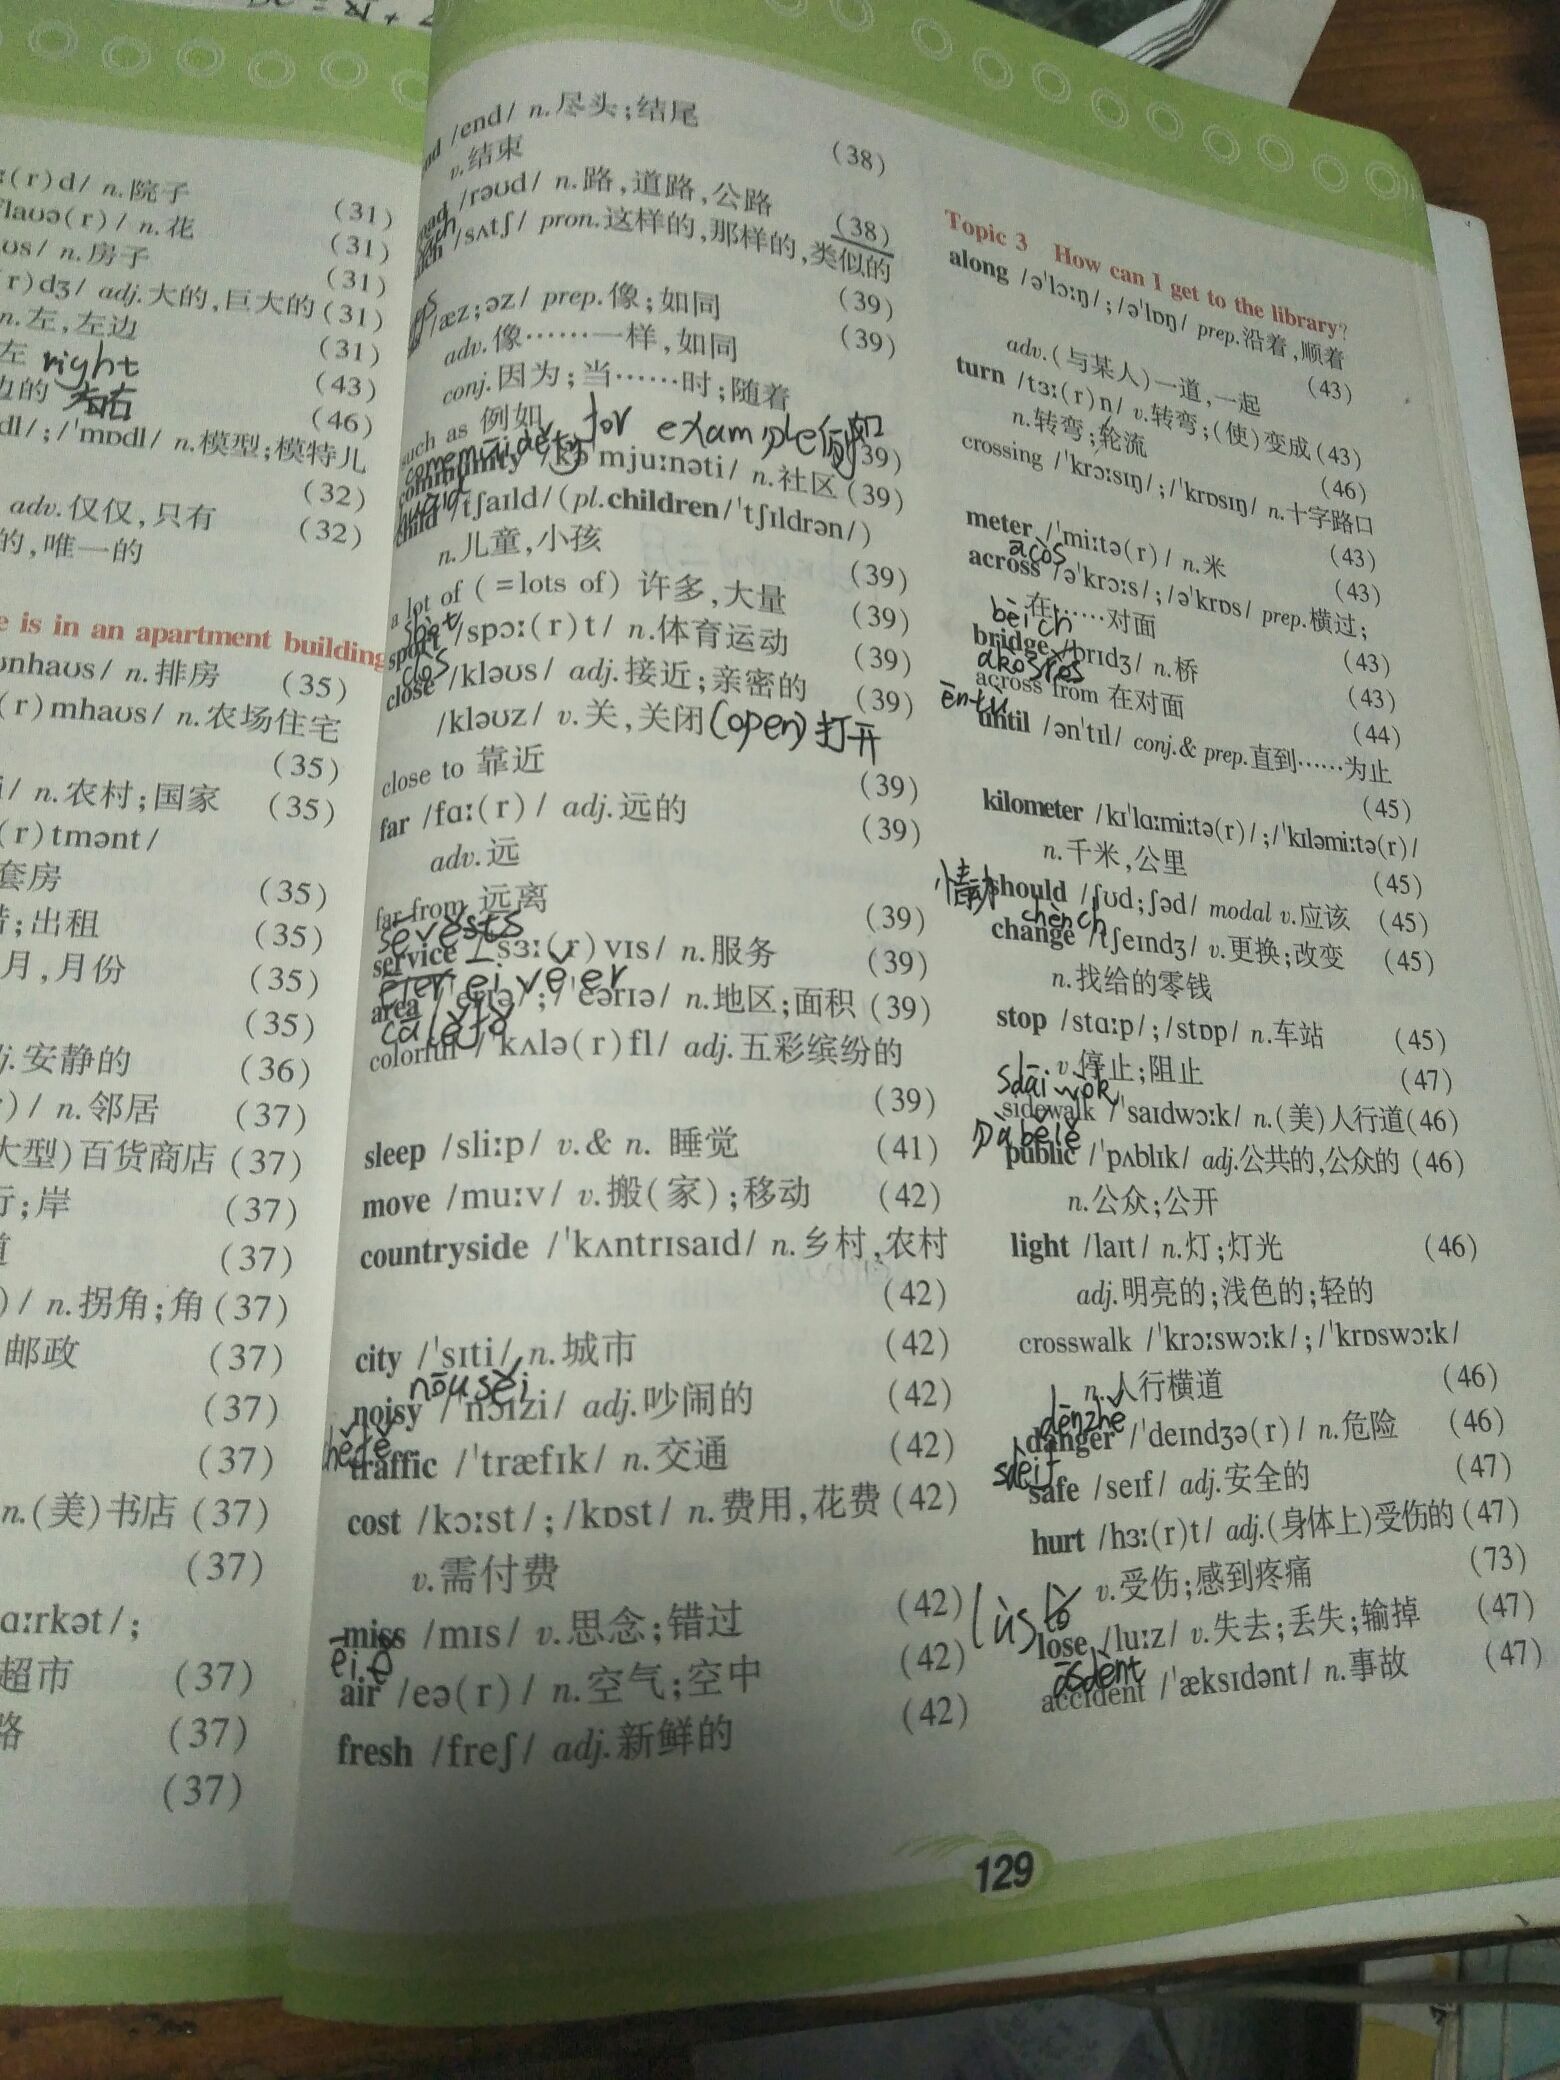 (r)d/ n.院子 (31)
flaʊə(r)/ n.花 (31)
n.房子 (31)
(r)dʒ/ adj.大的,巨大的(31)
n.左,左边 (31)
左 right (43)
边的 右 (46)
/;/ˈmɒdl/ n.模型;模特儿
(32)
adv.仅仅,只有 (32)
的,唯一的
is in an apartment building
n.排房 (35)
(r)mhaʊs/ n.农场住宅
(35)
n.农村;国家 (35)
(r)tmənt/
套房 (35)
;出租 (35)
月,月份 (35)
(35)
安静的 (36)
n.邻居 (37)
大型)百货商店 (37)
;岸 (37)
(37)
n.拐角;角(37)
邮政 (37)
(37)
(37)
n.(美)书店 (37)
(37)
ɑːrkət/;
超市 (37)
路 (37)
(37)
/end/ n.尽头;结尾
v.结束 (38)
/rəʊd/ n.路,道路,公路 (38)
/sʌtʃ/ pron.这样的,那样的,类似的
(39)
/æz;əz/ prep.像;如同 (39)
adv.像……一样,如同
conj.因为;当……时;随着
such as 例如 for example例如 (39)
community /kəˈmjuːnəti/ n.社区 (39)
child /tʃaɪld/(pl.children/ˈtʃɪldrən/)
n.儿童,小孩 (39)
a lot of (=lots of) 许多,大量 (39)
sport /spɔː(r)t/ n.体育运动 (39)
clos
close /kləʊs/ adj.接近;亲密的 (39)
/kləʊz/ v.关,关闭(open)打开
close to 靠近 (39)
far /fɑː(r)/ adj.远的 (39)
adv.远
far from 远离 (39)
service /ˈsɜː(r)vɪs/ n.服务 (39)
area /ˈerɪə/;/ˈeərɪə/ n.地区;面积 (39)
colorful /ˈkʌlə(r)fl/ adj.五彩缤纷的
(39)
sleep /sliːp/ v.& n. 睡觉 (41)
move /muːv/ v.搬(家);移动 (42)
countryside /ˈkʌntrɪsaɪd/ n.乡村,农村
(42)
city /ˈsɪti/ n.城市 (42)
nōusèi
noisy /ˈnɔɪzi/ adj.吵闹的 (42)
traffic /ˈtræfɪk/ n.交通 (42)
cost /kɔːst/;/kɒst/ n.费用,花费 (42)
v.需付费
miss /mɪs/ v.思念;错过 (42)
air /eə(r)/ n.空气;空中 (42)
fresh /freʃ/ adj.新鲜的 (42)
Topic 3 How can I get to the library?
along /əˈlɔːŋ/;/əˈlɒŋ/ prep.沿着,顺着
adv.(与某人)一道,一起 (43)
turn /tɜː(r)n/ v.转弯;(使)变成(43)
n.转弯;轮流 (46)
crossing /ˈkrɔːsɪŋ/;/ˈkrɒsɪŋ/ n.十字路口
(43)
meter /ˈmiːtə(r)/ n.米 (43)
acòs
across /əˈkrɔːs/;/əˈkrɒs/ prep.横过;
在……对面 (43)
bèich
bridge /brɪdʒ/ n.桥 (43)
across from 在对面 (44)
until /ənˈtɪl/ conj.& prep.直到……为止
(45)
kilometer /kɪˈlɑːmiːtə(r)/;/ˈkɪləmiːtə(r)/
n.千米,公里 (45)
情动 should /ʃʊd;ʃəd/ modal v.应该 (45)
chènch
change /tʃeɪndʒ/ v.更换;改变 (45)
n.找给的零钱
stop /stɑːp/;/stɒp/ n.车站 (45)
v.停止;阻止 (47)
sdāi wok
sidewalk /ˈsaɪdwɔːk/ n.(美)人行道(46)
public /ˈpʌblɪk/ adj.公共的,公众的 (46)
n.公众;公开
light /laɪt/ n.灯;灯光 (46)
adj.明亮的;浅色的;轻的
crosswalk /ˈkrɔːswɔːk/;/ˈkrɒswɔːk/
n.人行横道 (46)
dēnzhe
danger /ˈdeɪndʒə(r)/ n.危险 (46)
safe /seɪf/ adj.安全的 (47)
hurt /hɜː(r)t/ adj.(身体上)受伤的 (47)
v.受伤;感到疼痛 (73)
lose /luːz/ v.失去;丢失;输掉 (47)
āsdènt
accident /ˈæksɪdənt/ n.事故 (47)
129